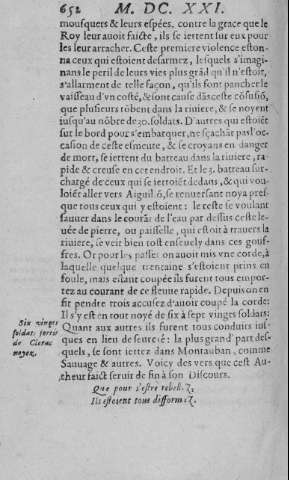 652 M. DC. XXI.
mousquers & leurs espées, contre la grace que le
Roy leur auoit faicte, ils se iettent sur eux pour
les leur arracher. Ceste premiere violence eston-
na ceux qui estoient desarmez, lesquels s'imagi-
nans le peril de leurs vies plus grãd qu'il n'estoit,
s'allarment de telle façon, qu'ils font pancher le
vaisseau d'vn costé, & sont cause dãs ceste cõfusiõ,
que plusieurs tõbent dans la riuiere, & se noyent
iusqu'au nõbre de 20. soldats. D'autres qui estoiẽt
sur le bord pour s'embarquer, ne sçachãt pas l'oc-
casion de ceste esmeute, & se croyans en danger
de mort, se iettent du batteau dans la riuiere, ra-
pide & creuse en cet endroit. Et le 3. batteau sur-
chargé de ceux qui se iettoiẽt dedans, & qui vou-
loiẽt aller vers Aiguillõ, se renuersant noya pres-
que tous ceux qui y estoient: le reste se voulant
sauuer dans le courãt de l'eau par dessus ceste le-
uée de pierre, ou paisselle, qui est oit à trauers la
riuiere, se veit bien tost enseuely dans ces gouf-
fres. Or pour les passer on auoit mis vne corde, à
laquelle quelque trentaine s'estoient prins en
foule, mais estant coupée ils furent tous empor-
tez au courant de ce fleuue rapide. Depuis on en
fit pendre trois accusez d'auoir coupé la corde:
Il s'y est en tout noyé de six à sept vingts soldats:
Quant aux autres ils furent tous conduits ius-
ques en lieu de seureté: la plus grand' part des-
quels, se sont iettez dans Montauban, comme
Sauuage & autres. Voicy des vers que cest Au-
theur faict seruir de fin à son Discours.
Que pour s'estre rebellez,
Ils estoient tous difformez,
Six vingts
soldats sortis
de Clerac
noyez.